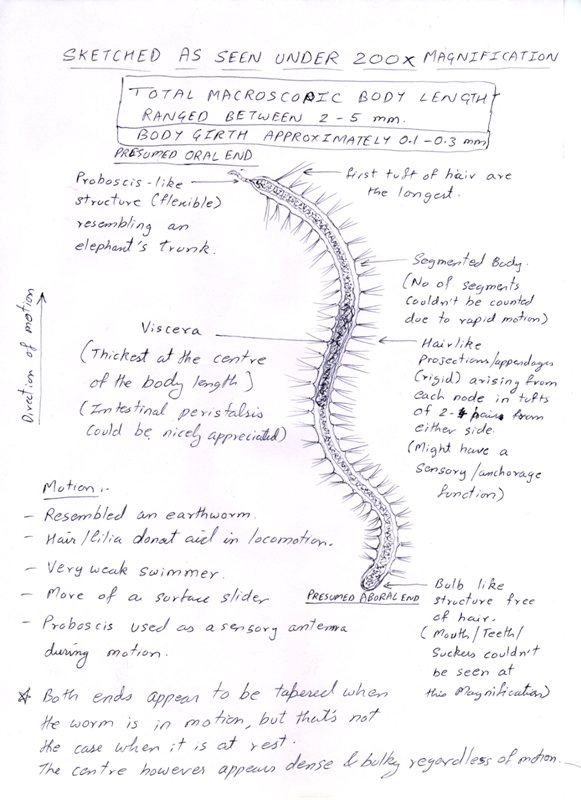 SKETCHED AS SEEN UNDER 200x MAGNIFICATION
TOTAL MACROSCOPIC BODY LENGTH
RANGED BETWEEN 2 - 5 mm.
BODY GIRTH APPROXIMATELY 0.1 - 0.3 mm
PRESUMED ORAL END
Proboscis-like
structure (flexible)
resembling an
elephant's trunk.
first tuft of hair are
the longest.
Segmented Body.
(No of segments
couldn't be counted
due to rapid motion)
Direction of motion
Viscera
(Thickest at the centre
of the body length)
(Intestinal peristalsis
could be nicely appreciated)
Hairlike
Projections/appendages
(rigid) arising from
each node in tufts
of 2- hair from
either side.
(Might have a
sensory/anchorage
function)
Motion:-
- Resembled an earthworm.
- Hair/Cilia donot aid in locomotion.
- Very weak swimmer.
- More of a surface slider
- Proboscis used as a sensory antenna
during motion.
PRESUMED ABORAL END
Bulb like
structure free
of hair.
(Mouth/Teeth/
Suckers couldn't
be seen at
this Magnification)
* Both ends appear to be tapered when
the worm is in motion, but that's not
the case when it is at rest.
The centre however appears dense & bulky regardless of motion.